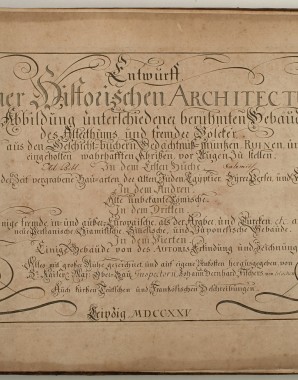 Entwurff
Einer Historischen ARCHITECTUR
Abbildung unterschiedener berühmten Gebäude
des Alterthums und fremder Völcker
aus den Geschicht-büchern, Gedächtnuß-müntzen, RUINEN, und
eingeholten wahrhafften Abrißen, vor Augen zu stellen.
In dem Ersten Buche
der Zeit vergrabene Bau-arten der alten Jüden, Egyptier, Syrer, Perser, und
In dem Andren
Alte unbekante Römische.
In dem Dritten
Einige fremde in- und außer-Europäische, als der Araber und Türcken, etc. auch
neue Persianische, Siamitische, Sinesische, und Japonesische Gebäude.
In dem Vierten
Einige Gebäude von des AUTORIS Erfindung und Zeichnung
Alles mit großer Mühe gezeichnet, und auf eigene Unkosten herausgegeben, von
Sr. Kaiserl. Maj. Ober-Bau Inspectorn, Johann Bernhard Fischers, von
Auch kurtzen Teutschen und Frantzösischen Beschreibungen.
Leipzig, MDCCXXV